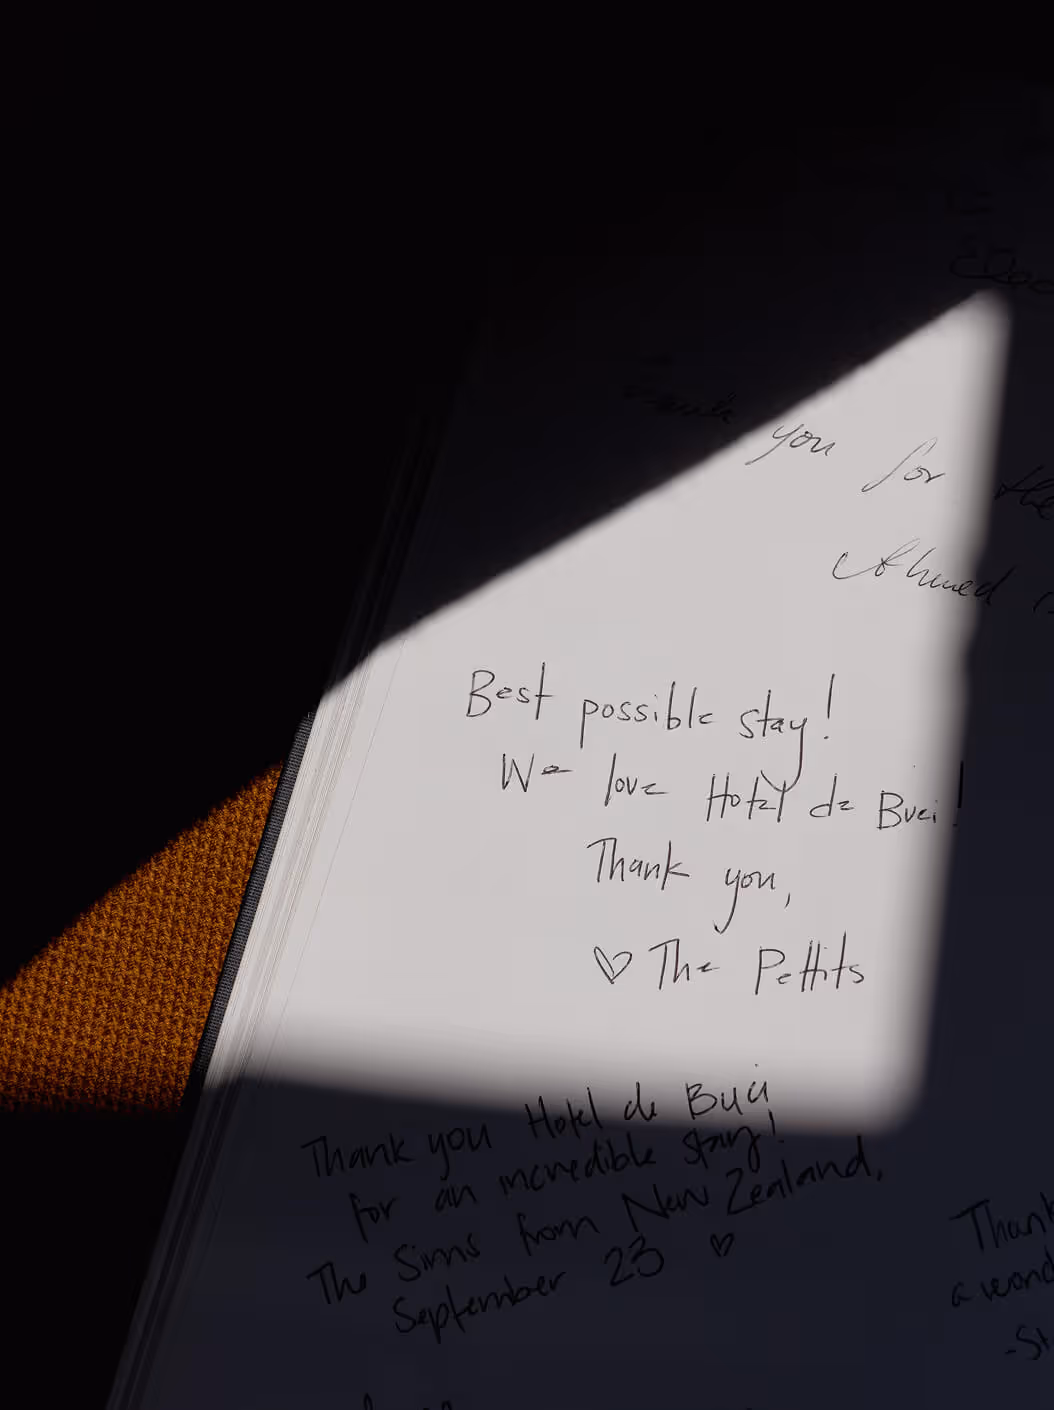 Thank you for the
Ahmed
Best possible stay!
We love Hotel de Buci!
Thank you,
♡ The Pettits
Thank you Hotel de Buci
for an incredible stay!
The Sims from New Zealand,
September 23 ♡
Thank
a wond
-St